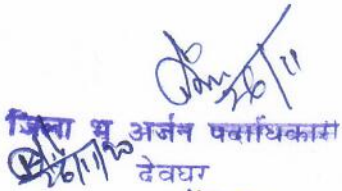 26/11
जिला भू अर्जन पदाधिकारी
26/11/20
देवघर